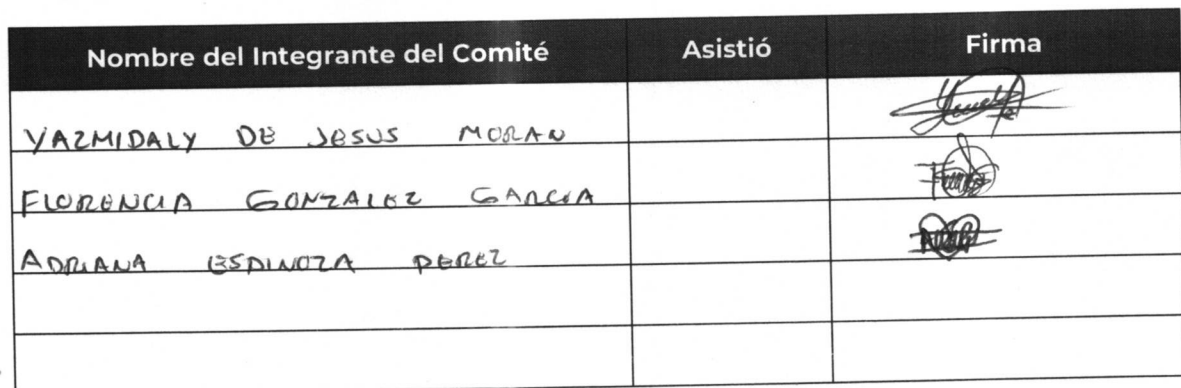 Nombre del Integrante del Comité Asistió Firma
YAZMIDALY DE JESUS MORAN
FLORENCIA GONZALEZ GARCIA
ADRIANA ESPINOZA PEREZ